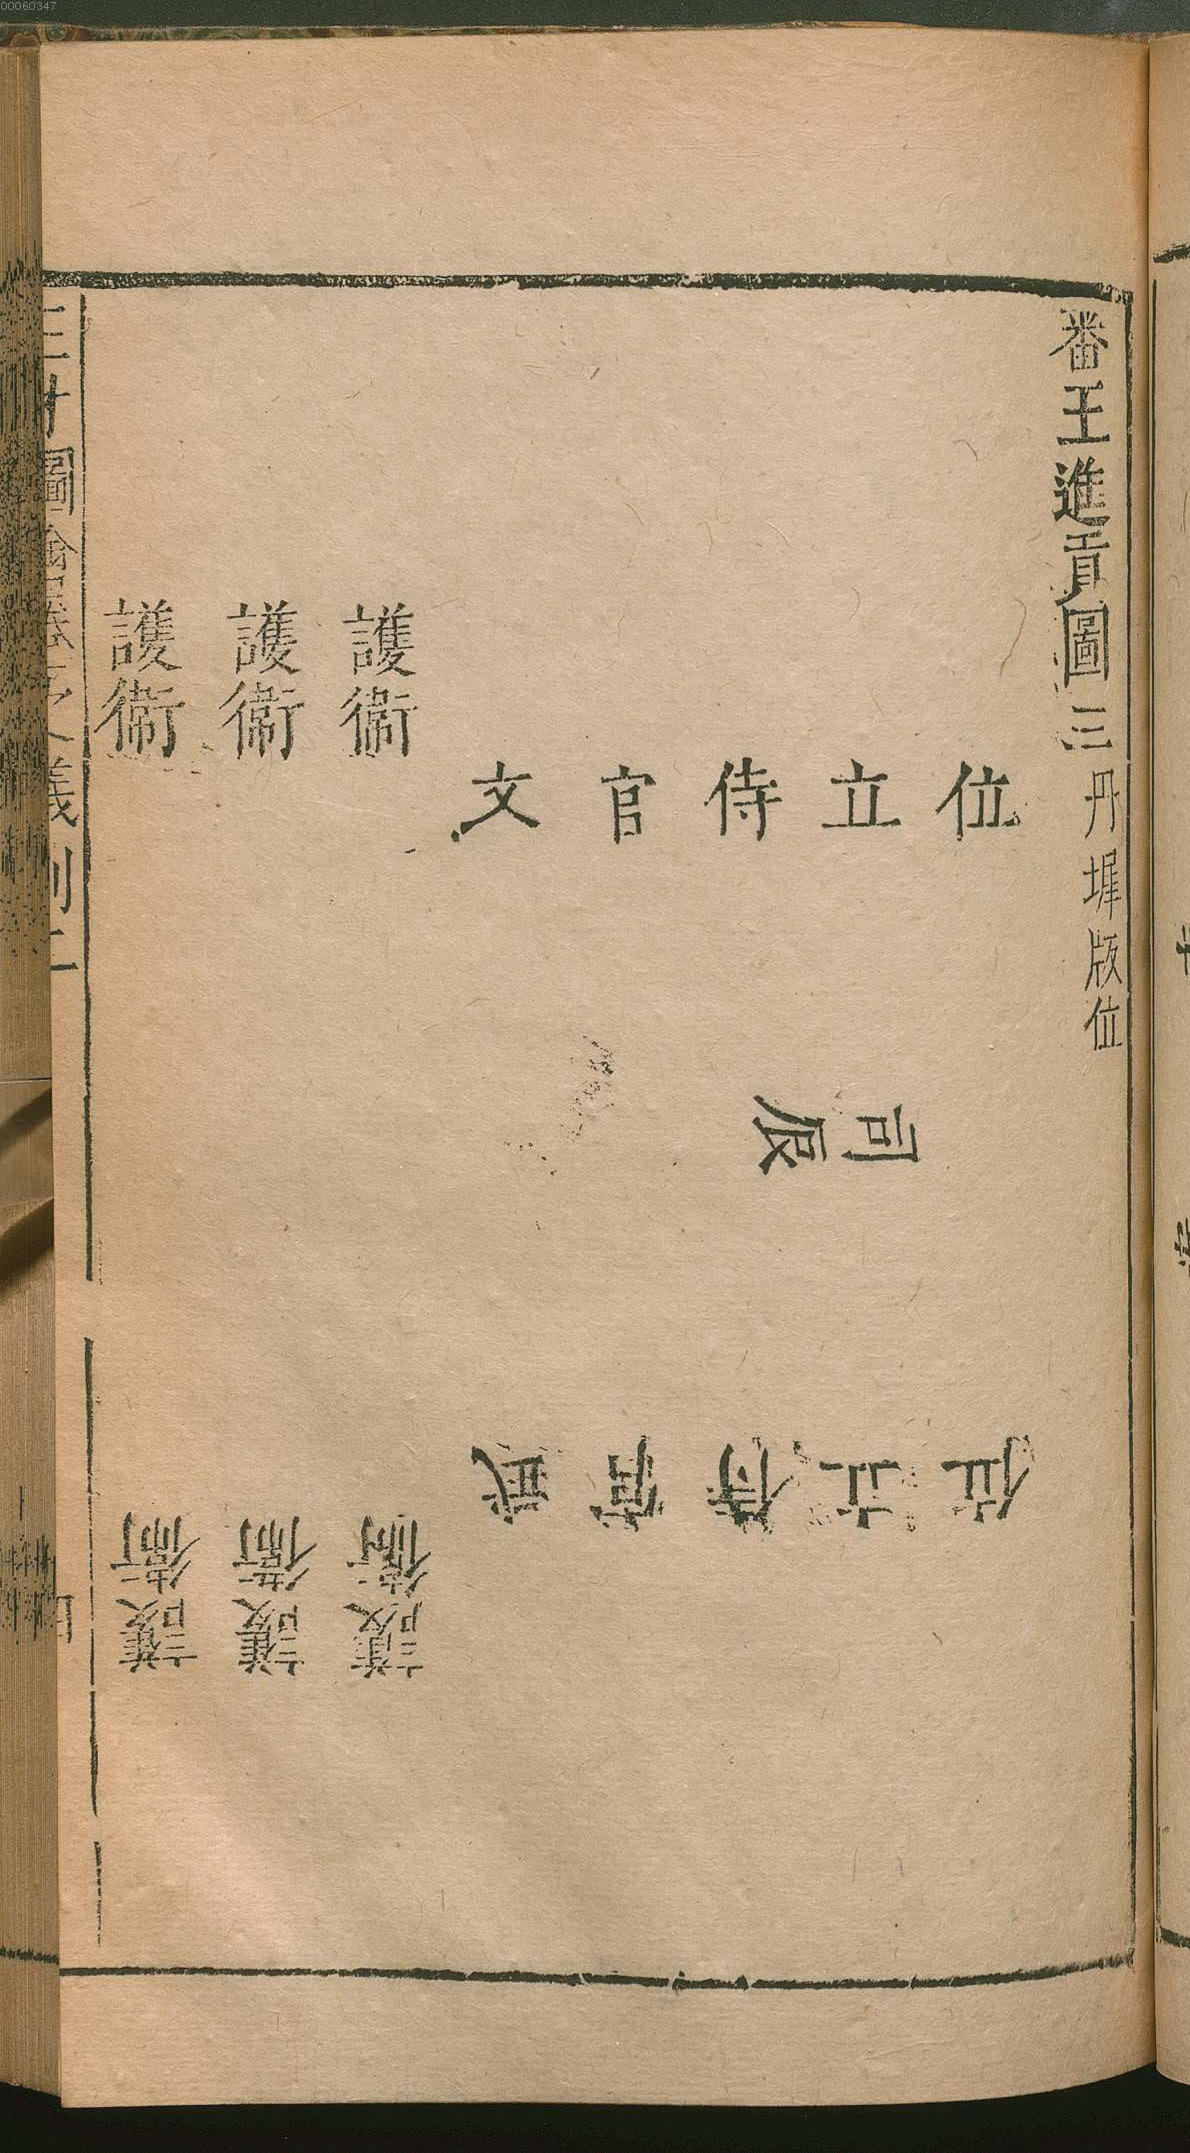 00060347
番王進貢圖三丹墀版位
位立侍官文
司辰
位立侍官武
護衛
護衛
護衛
護衛
護衛
護衛
三才圖會
儀制二